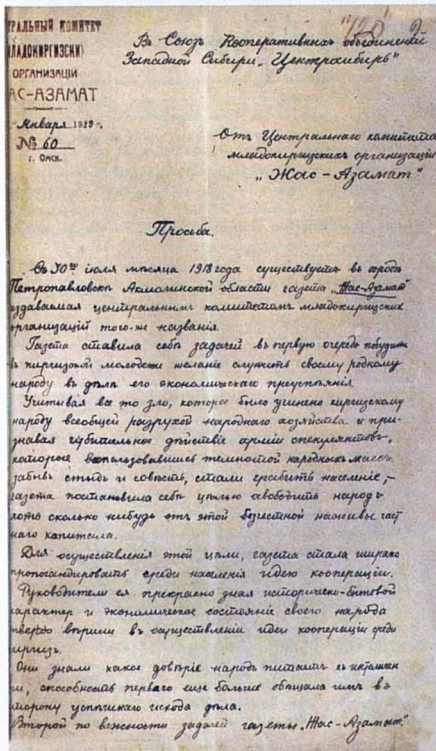 ТРАЛЬНЫЙ КОМИТЕТ
ЛАДОКИРГИЗСКИ
ОРГАНИЗАЦІИ
АС-АЗАМАТ
Января 1919 г.
№ 60
г. Омск.
"120"
Въ Союзъ Кооперативныхъ объединеній
Западной Сибири „Центросибирь"
Отъ Центральнаго комитета
младокиргизскихъ организаціи
„Жас-Азамат"
Просьба.
Съ 30го іюля мѣсяца 1918 года существуетъ въ городѣ
Петропавловскѣ Акмолинской области газета „Жас-Азамат"
здаваемая центральнымъ комитетомъ младокиргизскихъ
организацій того-же названія.
Газета ставила себѣ задачей въ первую очередь побудить
въ киргизской молодежи желаніе служить своему родному
народу въ дѣлѣ его экономическаго преуспѣянія.
Учитывая все то зло, которое было учинено киргизскому
народу всеобщей разрухой народнаго хозяйства и при-
знавая губительное дѣйствіе арміи спекулянтовъ,
которые воспользовавшись темнотой народныхъ массъ
забывъ стыдъ и совѣсть, стали грабить населеніе, –
газета поставила себѣ цѣлью освободить народъ
хотя сколько нибудь отъ этой безчестной наживы част
наго капитала.
Для осуществленія этой цѣли, газета стала широко
пропагандировать среди населенія идею коопераціи.
Руководители ея прекрасно зная историческо-бытовой
характер и экономическое состояніе своего народа
твердо вѣрили въ осуществленіи идеи коопераціи среди
иргизъ.
Они знали какое довѣріе народъ питаетъ къ интелиген
ціи, способность перваго еще больше обѣщала имъ въ
сторону успѣшнаго исхода дѣла.
Второй по важности задачей газеты „Жас-Азамат"